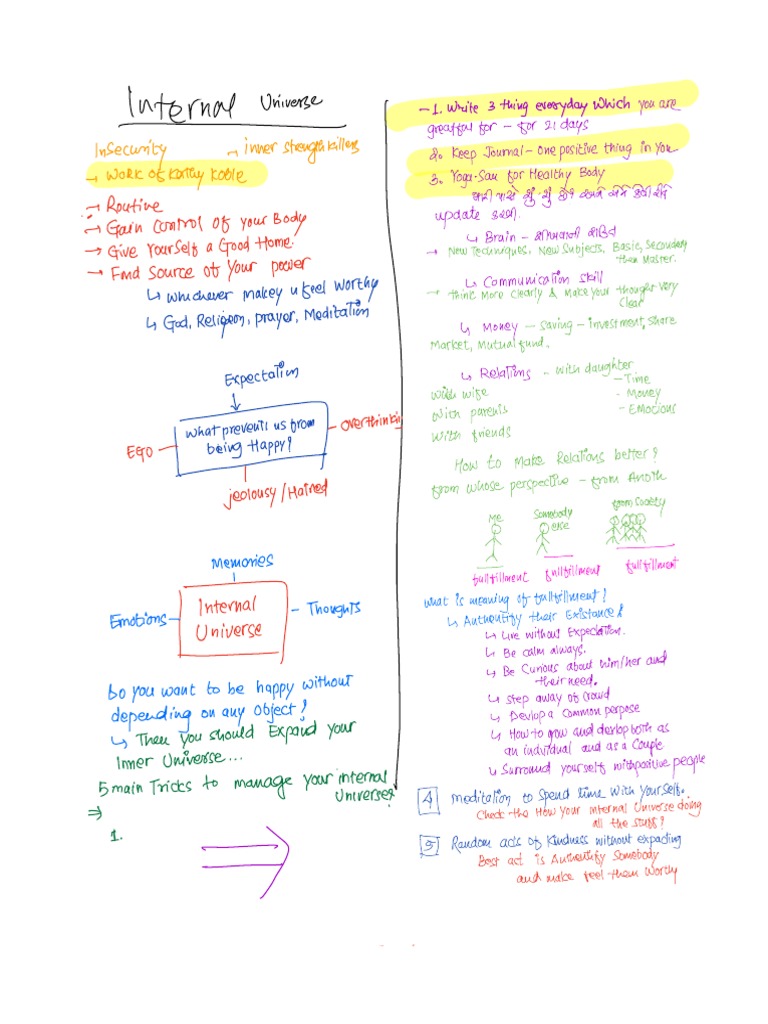 Internal Universe
Insecurity → inner strength killers
→ Work of Kathy Koble
→ Routine
→ Gain control of your Body
→ Give Yourself a Good Home.
→ Find Source of Your power
↳ whichever makey u feel worthy
↳ God, Religion, prayer, Meditation
Expectation
↓
what prevents us from
being Happy?
EGO
overthinkin
jeolousy/Hatred
Memories
Emotions
Internal
Universe
Thoughts
Do you want to be happy without
depending on any object?
↳ Then you should Expand your
Inner Universe...
5 main Tricks to manage your internal
Universe?
⇒
1.
→ 1. Write 3 thing everyday which you are
greatful for - for 21 days
2. Keep Journal - One positive thing in You
3. Yoga-San for Healthy Body
update કરશો.
↳ Brain -
→ New Techniques, New Subjects, Basic, Secondary
then Master.
↳ Communication skill
→ think More clearly & Make your thought very
Clear
↳ Money - saving - investment, share
Market, Mutual fund.
↳ Relations - with daughter
with wife
with parents
with friends
- Time
- Money
- Emotions
How to Make Relations better?
from whose perspective - from Anoth
Me
Somebody
else
from society
fullfillment fullfillment fullfillment
what is meaning of fullfillment?
↳ Authentify their Existance?
↳ Live without Expectation.
↳ Be calm always.
↳ Be Curious about him/her and
their need.
↳ step away of crowd
↳ Develop a common perpose
↳ How to grow and develop both as
an individual and as a Couple
↳ Surround yourself with positive people
4 Meditation to Spend time with yourself.
Check the How your internal Universe doing
all the stuff?
5 Random acts of kindness without expecting
Best act is Authentify Somebody
and make feel them worthy